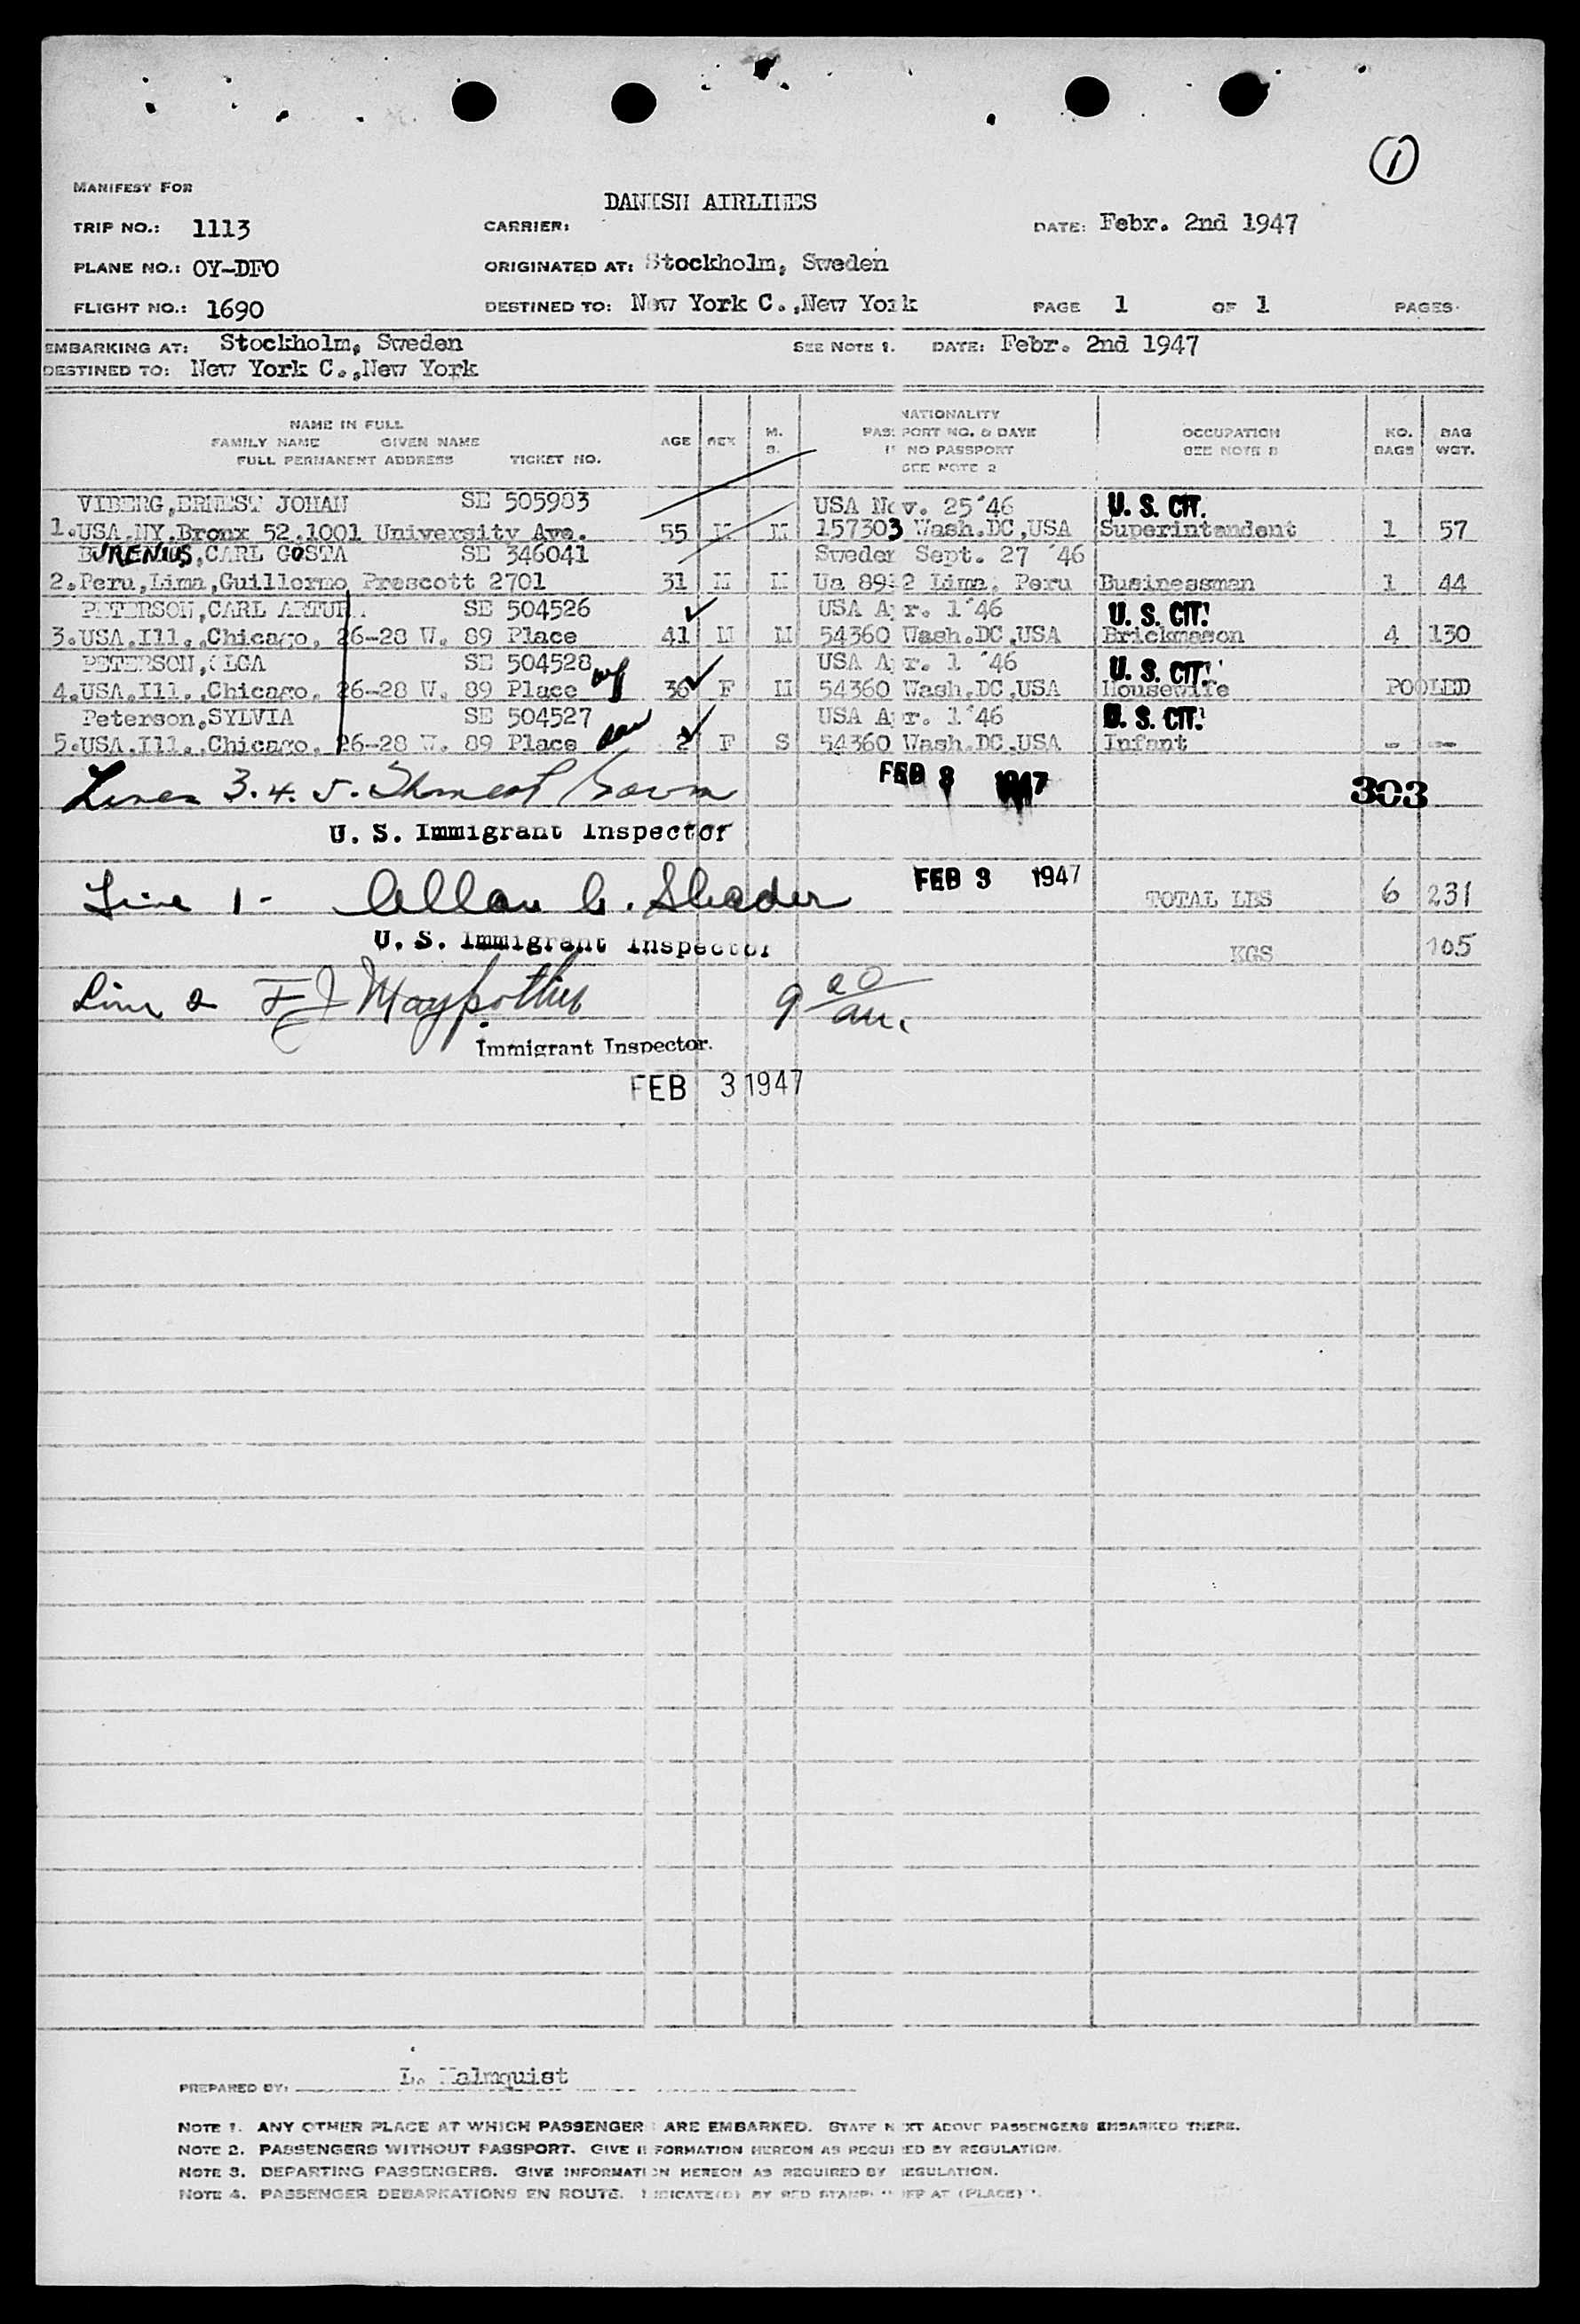 1
MANIFEST FOR
DANISH AIRLINES
TRIP NO.: 1113 CARRIER: DATE: Febr. 2nd 1947
PLANE NO.: OY-DFO ORIGINATED AT: Stockholm, Sweden
FLIGHT NO.: 1690 DESTINED TO: New York C.,New York PAGE 1 OF 1 PAGES
EMBARKING AT: Stockholm, Sweden SEE NOTE 1. DATE: Febr. 2nd 1947
DESTINED TO: New York C.,New York
NAME IN FULL
FAMILY NAME GIVEN NAME
FULL PERMANENT ADDRESS TICKET NO.
AGE
SEX
M.
S.
NATIONALITY
PASSPORT NO. & DATE
IF NO PASSPORT
SEE NOTE 2
OCCUPATION
SEE NOTE 3
NO.
BAGS
BAG
WGT.
VIBERG,ERNEST JOHAN SE 505983 USA Nov. 25'46 U. S. CIT.
1.USA.NY.Bronx 52.1001 University Ave. 55 M M 157303 Wash.DC,USA Superintendent 1 57
BURENIUS,CARL GOSTA SE 346041 Sweden Sept. 27 '46
2.Peru,Lima,Guillermo Prescott 2701 31 M M Ua 8932 Lima, Peru Businessman 1 44
PETERSON,CARL ARTUR SE 504526 USA Apr. 1'46 U. S. CIT.
3.USA.Ill.,Chicago, 26-28 W. 89 Place 41 M M 54360 Wash.DC,USA Brickmason 4 130
PETERSON,OLGA SE 504528 USA Apr. 1 '46 U. S. CIT.
4.USA.Ill.,Chicago, 26-28 W. 89 Place wf 36 F M 54360 Wash.DC,USA Housewife POOLED
Peterson,SYLVIA SE 504527 USA Apr. 1'46 U. S. CIT.
5.USA.Ill.,Chicago, 26-28 W. 89 Place dau 2 F S 54360 Wash.DC,USA Infant - --
Lines 3.4.5. FEB 3 1947 303
U. S. Immigrant Inspector
Line 1- Allan FEB 3 1947 TOTAL LBS 6 231
U. S. Immigrant Inspector KGS 105
Line 2 F J 9 20/am.
Immigrant Inspector.
FEB 3 1947
PREPARED BY: L. Malmquist
NOTE 1. ANY OTHER PLACE AT WHICH PASSENGERS ARE EMBARKED. STATE NEXT ABOVE PASSENGERS EMBARKED THERE.
NOTE 2. PASSENGERS WITHOUT PASSPORT. GIVE INFORMATION HEREON AS REQUIRED BY REGULATION.
NOTE 3. DEPARTING PASSENGERS. GIVE INFORMATION HEREON AS REQUIRED BY REGULATION.
NOTE 4. PASSENGER DEBARKATIONS EN ROUTE. INDICATE(D) BY RED STAMP "OFF AT (PLACE)".